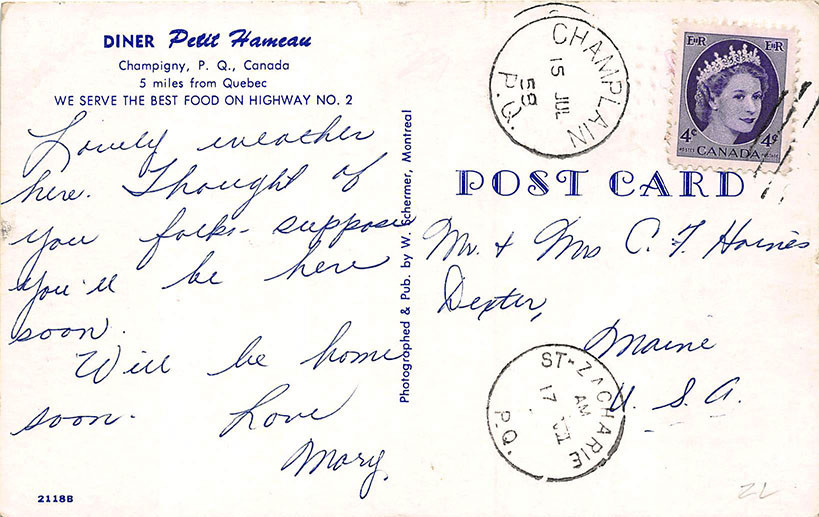 DINER Petit Hameau
Champigny, P. Q., Canada
5 miles from Quebec
WE SERVE THE BEST FOOD ON HIGHWAY NO. 2
Lovely weather
here. Thought of
you folks - suppose
you'll be here
soon.
Will be home
soon. Love
Mary.
2118B
Photographed & Pub. by W. Schermer, Montreal
CHAMPLAIN
15 JUL
59
P.Q.
EIIR EIIR
4¢ 4¢
POSTES CANADA POSTAGE
POST CARD
Mr. & Mrs C. F. Haines
Dexter,
Maine
U. S. A.
ST-ZACHARIE
AM
17 JUL
P.Q.